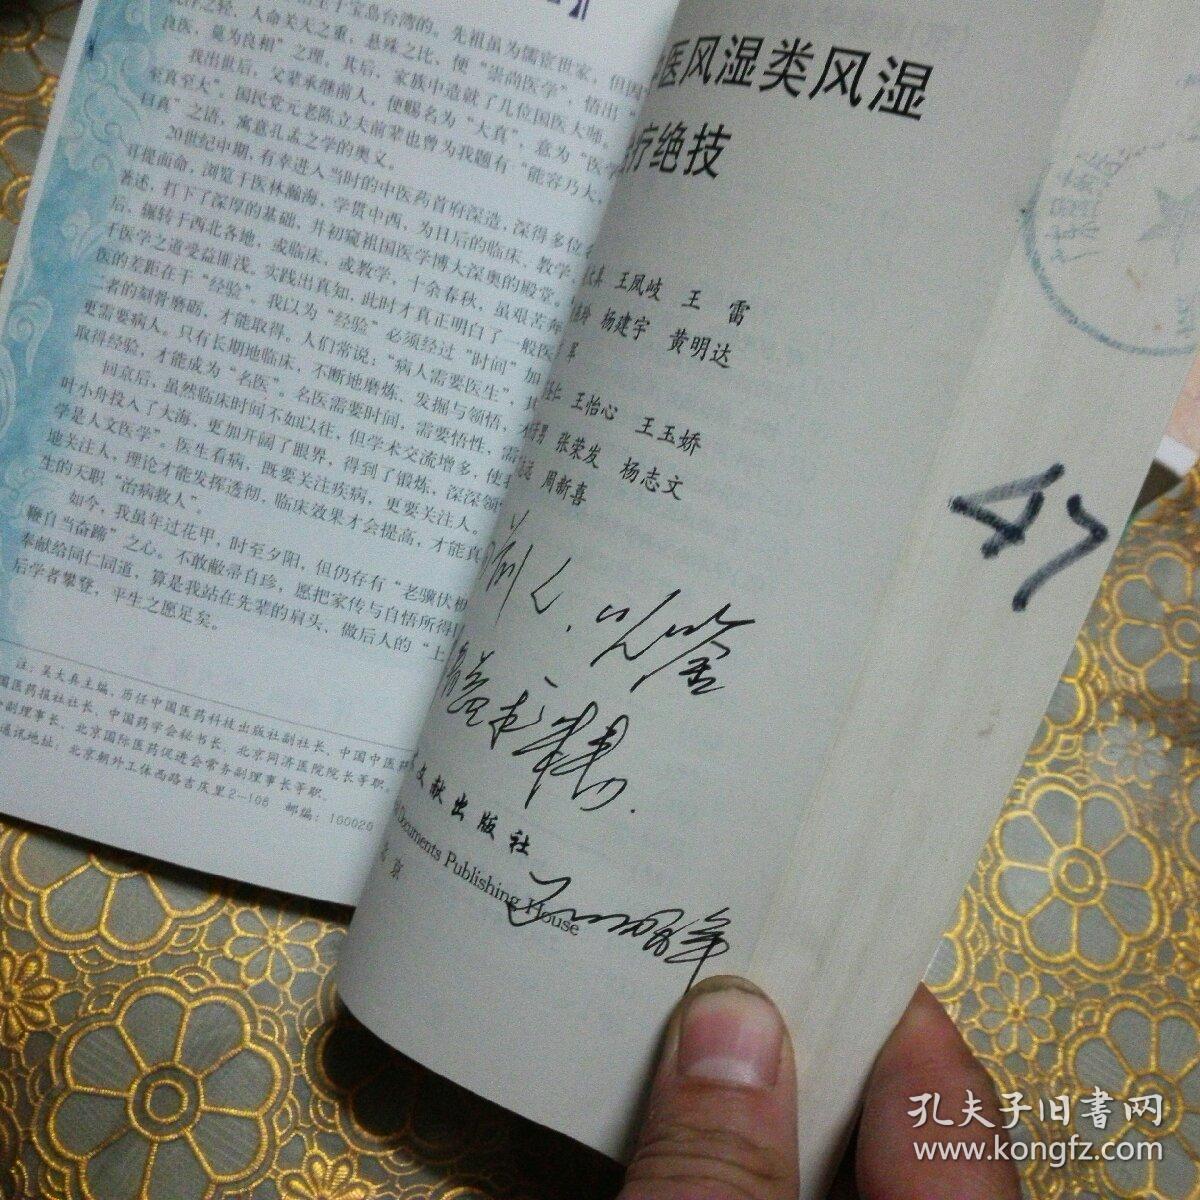 生于宝岛台湾的。先祖虽为儒宦世家,但因
之轻,人命关天之重,悬殊之比,便“崇尚医学”,悟出“
良医,竟为良相”之理。其后,家族中造就了几位国医大师。
我出世后,父辈承继前人,便赐名为“大真”,意为“医学
至真至大”。国民党元老陈立夫前辈也曾为我题有“能容乃大,
曰真”之语,寓意孔孟之学的奥义。
20世纪中期,有幸进入当时的中医药首府深造,深得多位
耳提面命,浏览于医林瀚海,学贯中西,为日后的临床、教学、
著述,打下了深厚的基础,并初窥祖国医学博大深奥的殿堂。
后,辗转于西北各地,或临床,或教学,十余春秋,虽艰苦奔
于医学之道受益匪浅。实践出真知,此时才真正明白了一般医
医的差距在于“经验”。我以为“经验”必须经过“时间”加
二者的刻骨磨砺,才能取得。人们常说:“病人需要医生”,其
更需要病人。只有长期地临床,不断地磨炼、发掘与领悟,才
取得经验,才能成为“名医”。名医需要时间,需要悟性,需
回京后,虽然临床时间不如以往,但学术交流增多,使我
叶小舟投入了大海,更加开阔了眼界,得到了锻炼,深深领
学是人文医学”。医生看病,既要关注疾病,更要关注人。
地关注人,理论才能发挥透彻,临床效果才会提高,才能真
生的天职“治病救人”。
如今,我虽年过花甲,时至夕阳,但仍存有“老骥伏枥
鞭自当奋蹄”之心。不敢敝帚自珍,愿把家传与自悟所得
奉献给同仁同道,算是我站在先辈的肩头、做后人的“上
后学者攀登,平生之愿足矣。
注:吴大真主编,历任中国医药科技出版社副社长、中国中医研
国医药报社社长、中国药学会秘书长、北京同济医院院长等职。
副理事长、北京国际医药促进会常务副理事长等职。
通讯地址:北京朝外工体西路吉庆里2-108 邮编:100020
医风湿类风湿
疗绝技
大真 王凤岐 王 雷
杨建宇 黄明达
王怡心 王玉娇
张荣发 杨志文
周新喜
文献出版社
Documents Publishing House
北京
47
孔夫子旧书网
www.kongfz.com